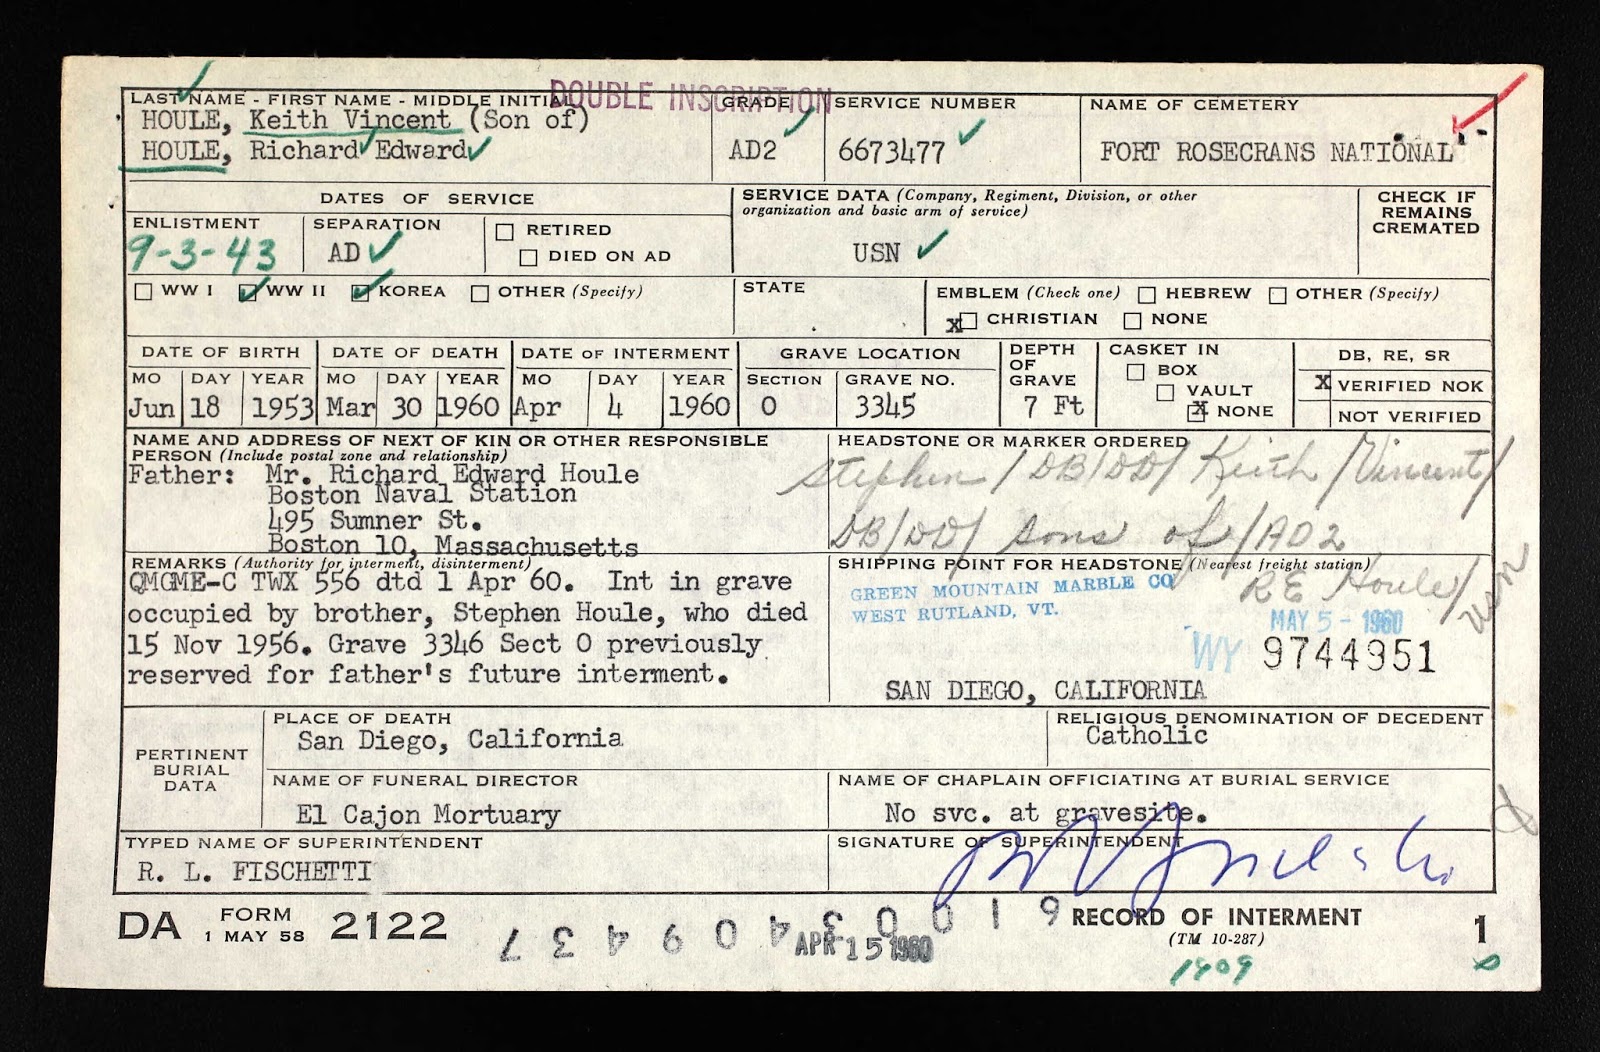 DOUBLE INSCRIPTION
LAST NAME - FIRST NAME - MIDDLE INITIAL
HOULE, Keith Vincent (Son of)
HOULE, Richard Edward
GRADE
AD2
SERVICE NUMBER
6673477
NAME OF CEMETERY
FORT ROSECRANS NATIONAL
DATES OF SERVICE
ENLISTMENT
9-3-43
SEPARATION
AD
RETIRED
DIED ON AD
SERVICE DATA (Company, Regiment, Division, or other
organization and basic arm of service)
USN
CHECK IF
REMAINS
CREMATED
WW I WW II KOREA OTHER (Specify)
STATE
EMBLEM (Check one) HEBREW OTHER (Specify)
X CHRISTIAN NONE
DATE OF BIRTH
MO DAY YEAR
Jun 18 1953
DATE OF DEATH
MO DAY YEAR
Mar 30 1960
DATE OF INTERMENT
MO DAY YEAR
Apr 4 1960
GRAVE LOCATION
SECTION GRAVE NO.
O 3345
DEPTH
OF
GRAVE
7 Ft
CASKET IN
BOX
VAULT
X NONE
DB, RE, SR
X VERIFIED NOK
NOT VERIFIED
NAME AND ADDRESS OF NEXT OF KIN OR OTHER RESPONSIBLE
PERSON (Include postal zone and relationship)
Father: Mr. Richard Edward Houle
Boston Naval Station
495 Sumner St.
Boston 10, Massachusetts
HEADSTONE OR MARKER ORDERED
Stephen / DB/DD/ Keith / Vincent/
DB/DD/ sons of / AD2
RE Houle/
USN
REMARKS (Authority for interment, disinterment)
QMGME-C TWX 556 dtd 1 Apr 60. Int in grave
occupied by brother, Stephen Houle, who died
15 Nov 1956. Grave 3346 Sect O previously
reserved for father's future interment.
SHIPPING POINT FOR HEADSTONE (Nearest freight station)
GREEN MOUNTAIN MARBLE CO
WEST RUTLAND, VT.
MAY 5 - 1960
WY 9744951
SAN DIEGO, CALIFORNIA
PERTINENT
BURIAL
DATA
PLACE OF DEATH
San Diego, California
RELIGIOUS DENOMINATION OF DECEDENT
Catholic
NAME OF FUNERAL DIRECTOR
El Cajon Mortuary
NAME OF CHAPLAIN OFFICIATING AT BURIAL SERVICE
No svc. at gravesite.
TYPED NAME OF SUPERINTENDENT
R. L. FISCHETTI
SIGNATURE OF SUPERINTENDENT
DA FORM 2122
1 MAY 58
APR 15 1960
RECORD OF INTERMENT
(TM 10-287)
1
1909